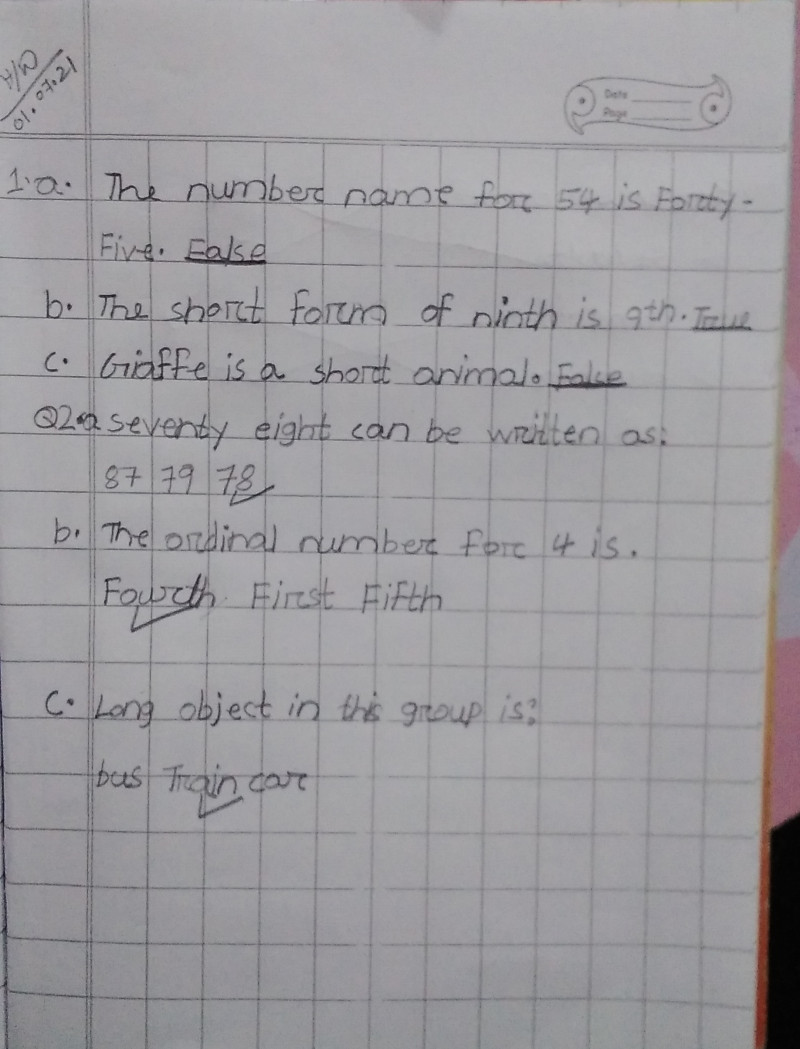 H/W
01.07.21
Date
Page
1.a. The number name for 54 is Forty-
Five. False
b. The short form of ninth is 9th. True
c. Giaffe is a short animal. False
Q2.a seventy eight can be written as:
87 79 78
b. The ordinal number for 4 is.
Fourth First Fifth
c. Long object in this group is?
bus Train car